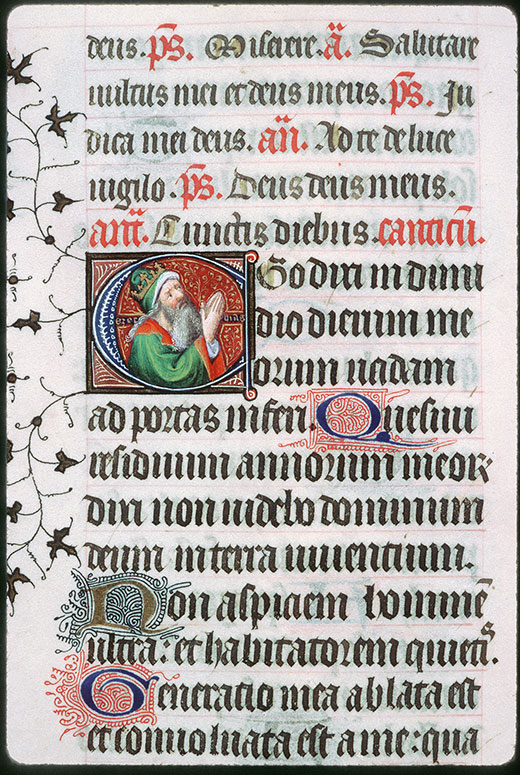 deus. ps̄. Miserere. a᷒. Salutare
uultus mei et deus meus. ps̄. Ju
dica mei deus. añ. Ad te de luce
uigilo. ps̄. Deus deus meus.
ant̄. Cunctis diebus. canticū.
EGo dixi in dimi
ezec hias
dio dierum me
orum uadam
ad portas inferi. Quesiui
residuum annorum meor
dixi non uidebo dominum
deum in terra uiuentium.
Non aspiciam hominē
ultra: et habitatorem quietis.
Generatio mea ablata est
et conuoluta est a me: qua